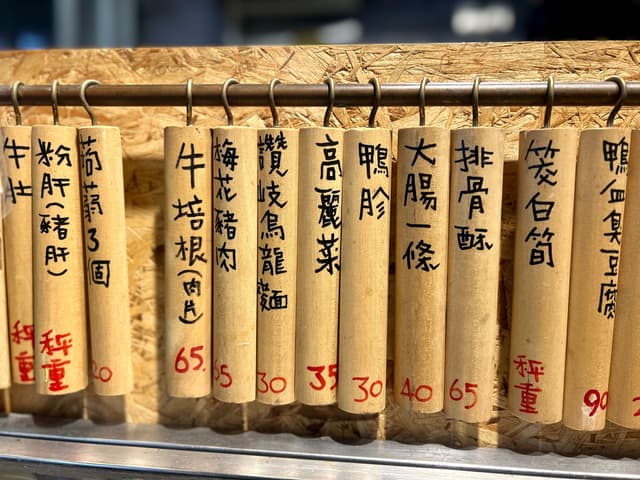 牛肚
秤重
粉肝(豬肝)
秤重
蒟蒻3個
20
牛培根(肉片)
65.
梅花豬肉
65
讚岐烏龍麵
30
高麗菜
35
鴨胗
30
大腸一條
40
排骨酥
65
筊白筍
秤重
鴨血臭豆腐
90